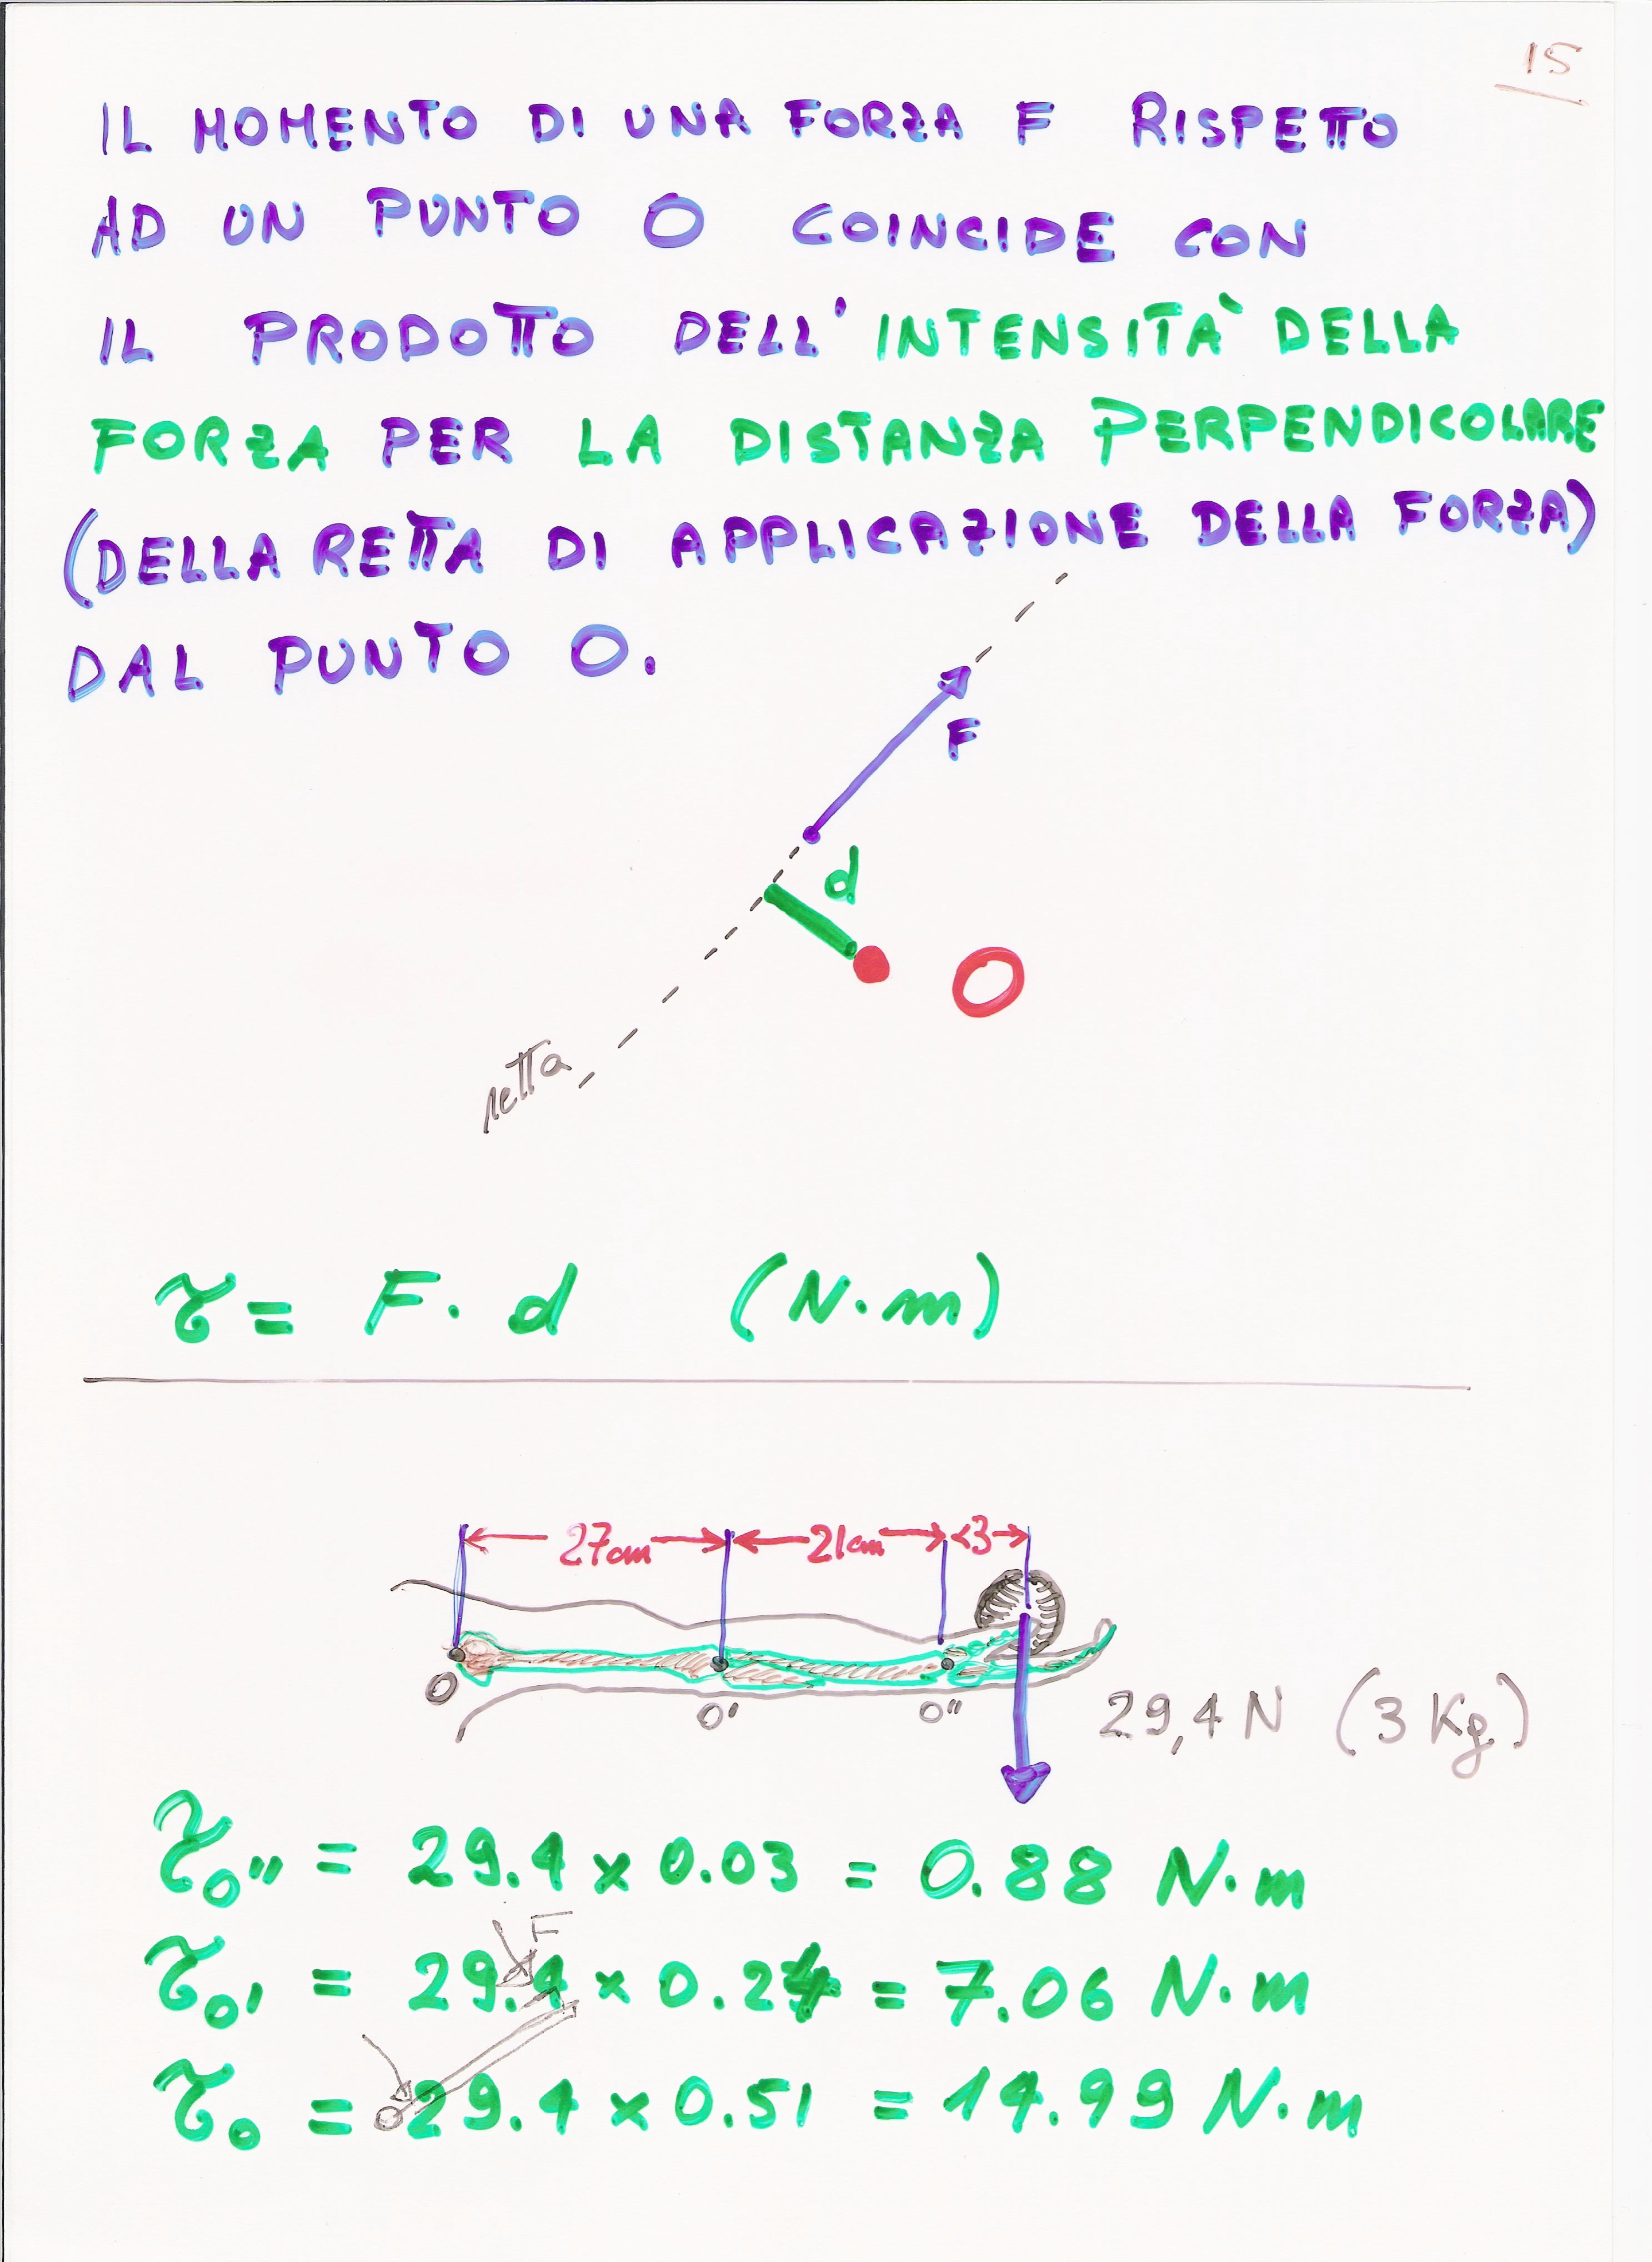 15
IL MOMENTO DI UNA FORZA F RISPETTO
AD UN PUNTO O COINCIDE CON
IL PRODOTTO DELL'INTENSITÀ DELLA
FORZA PER LA DISTANZA PERPENDICOLARE
(DELLA RETTA DI APPLICAZIONE DELLA FORZA)
DAL PUNTO O.
F
d
O
retta
τ = F · d (N·m)
27cm 21cm 3
O O' O''
29,4 N (3 Kg)
τO'' = 29.4 x 0.03 = 0.88 N·m
F
τO' = 29.4 x 0.24 = 7.06 N·m
τO = 29.4 x 0.51 = 14.99 N·m